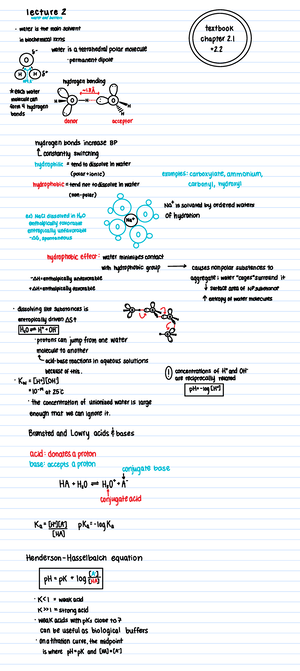 lecture 2
water and buffers
textbook
chapter 2.1
+2.2
· water is the main solvent
in biochemical rxns
water is a tetrahedral polar molecule
· permanent dipole
δ⁻
O
H H δ⁺
hydrogen bonding
* each water
molecule can
form 4 hydrogen
bonds
~1.8Å
donor acceptor
hydrogen bonds increase BP
↳ constantly switching
hydrophilic = tend to dissolve in water
(polar + ionic)
examples: carboxylate, ammonium,
carbonyl, hydroxyl
hydrophobic = tend not to dissolve in water
(non-polar)
ex) NaCl dissolved in H₂O
enthalpically favorable
entropically unfavorable
-ΔG, spontaneous
Na⁺
Na⁺ is solvated by ordered waters
of hydration
hydrophobic effect: water minimizes contact
with hydrophobic group → causes nonpolar substances to
aggregate: water "cages" surround it
↓ surface area of NP substance
↑ entropy of water molecules
-ΔH = enthalpically unfavorable
+ΔH = enthalpically favorable
· dissolving like substances is
entropically driven ΔS↑
H₂O ⇌ H⁺ + OH⁻
· protons can jump from one water
molecule to another
↳ acid-base reactions in aqueous solutions
because of this.
! concentrations of H⁺ and OH⁻
are reciprocally related
pH = -log [H⁺]
· Kw = [H⁺][OH]
= 10⁻¹⁴ at 25°C
· the concentration of unionized water is large
enough that we can ignore it.
Brønsted and Lowry acids & bases
acid: donates a proton
base: accepts a proton
conjugate base
HA + H₂O ⇌ H₃O⁺ + A⁻
conjugate acid
Ka = [H⁺][A⁻] pKa = -log Ka
[HA]
Henderson-Hasselbalch equation
pH = pK + log [A⁻]
[HA]
· K<1 = weak acid
K>>1 = strong acid
· weak acids with pKs close to 7
can be useful as biological buffers
· on a titration curve, the midpoint
is where pH=pK and [HA]=[A⁻]